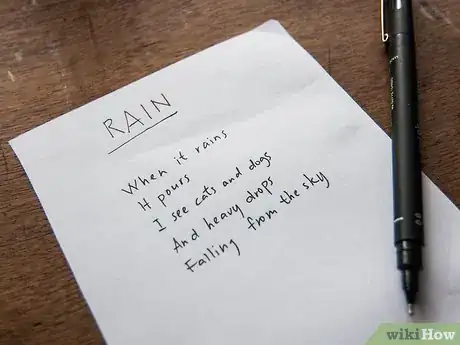 RAIN
When it rains
It pours
I see cats and dogs
And heavy drops
Falling from the sky
wikiHow